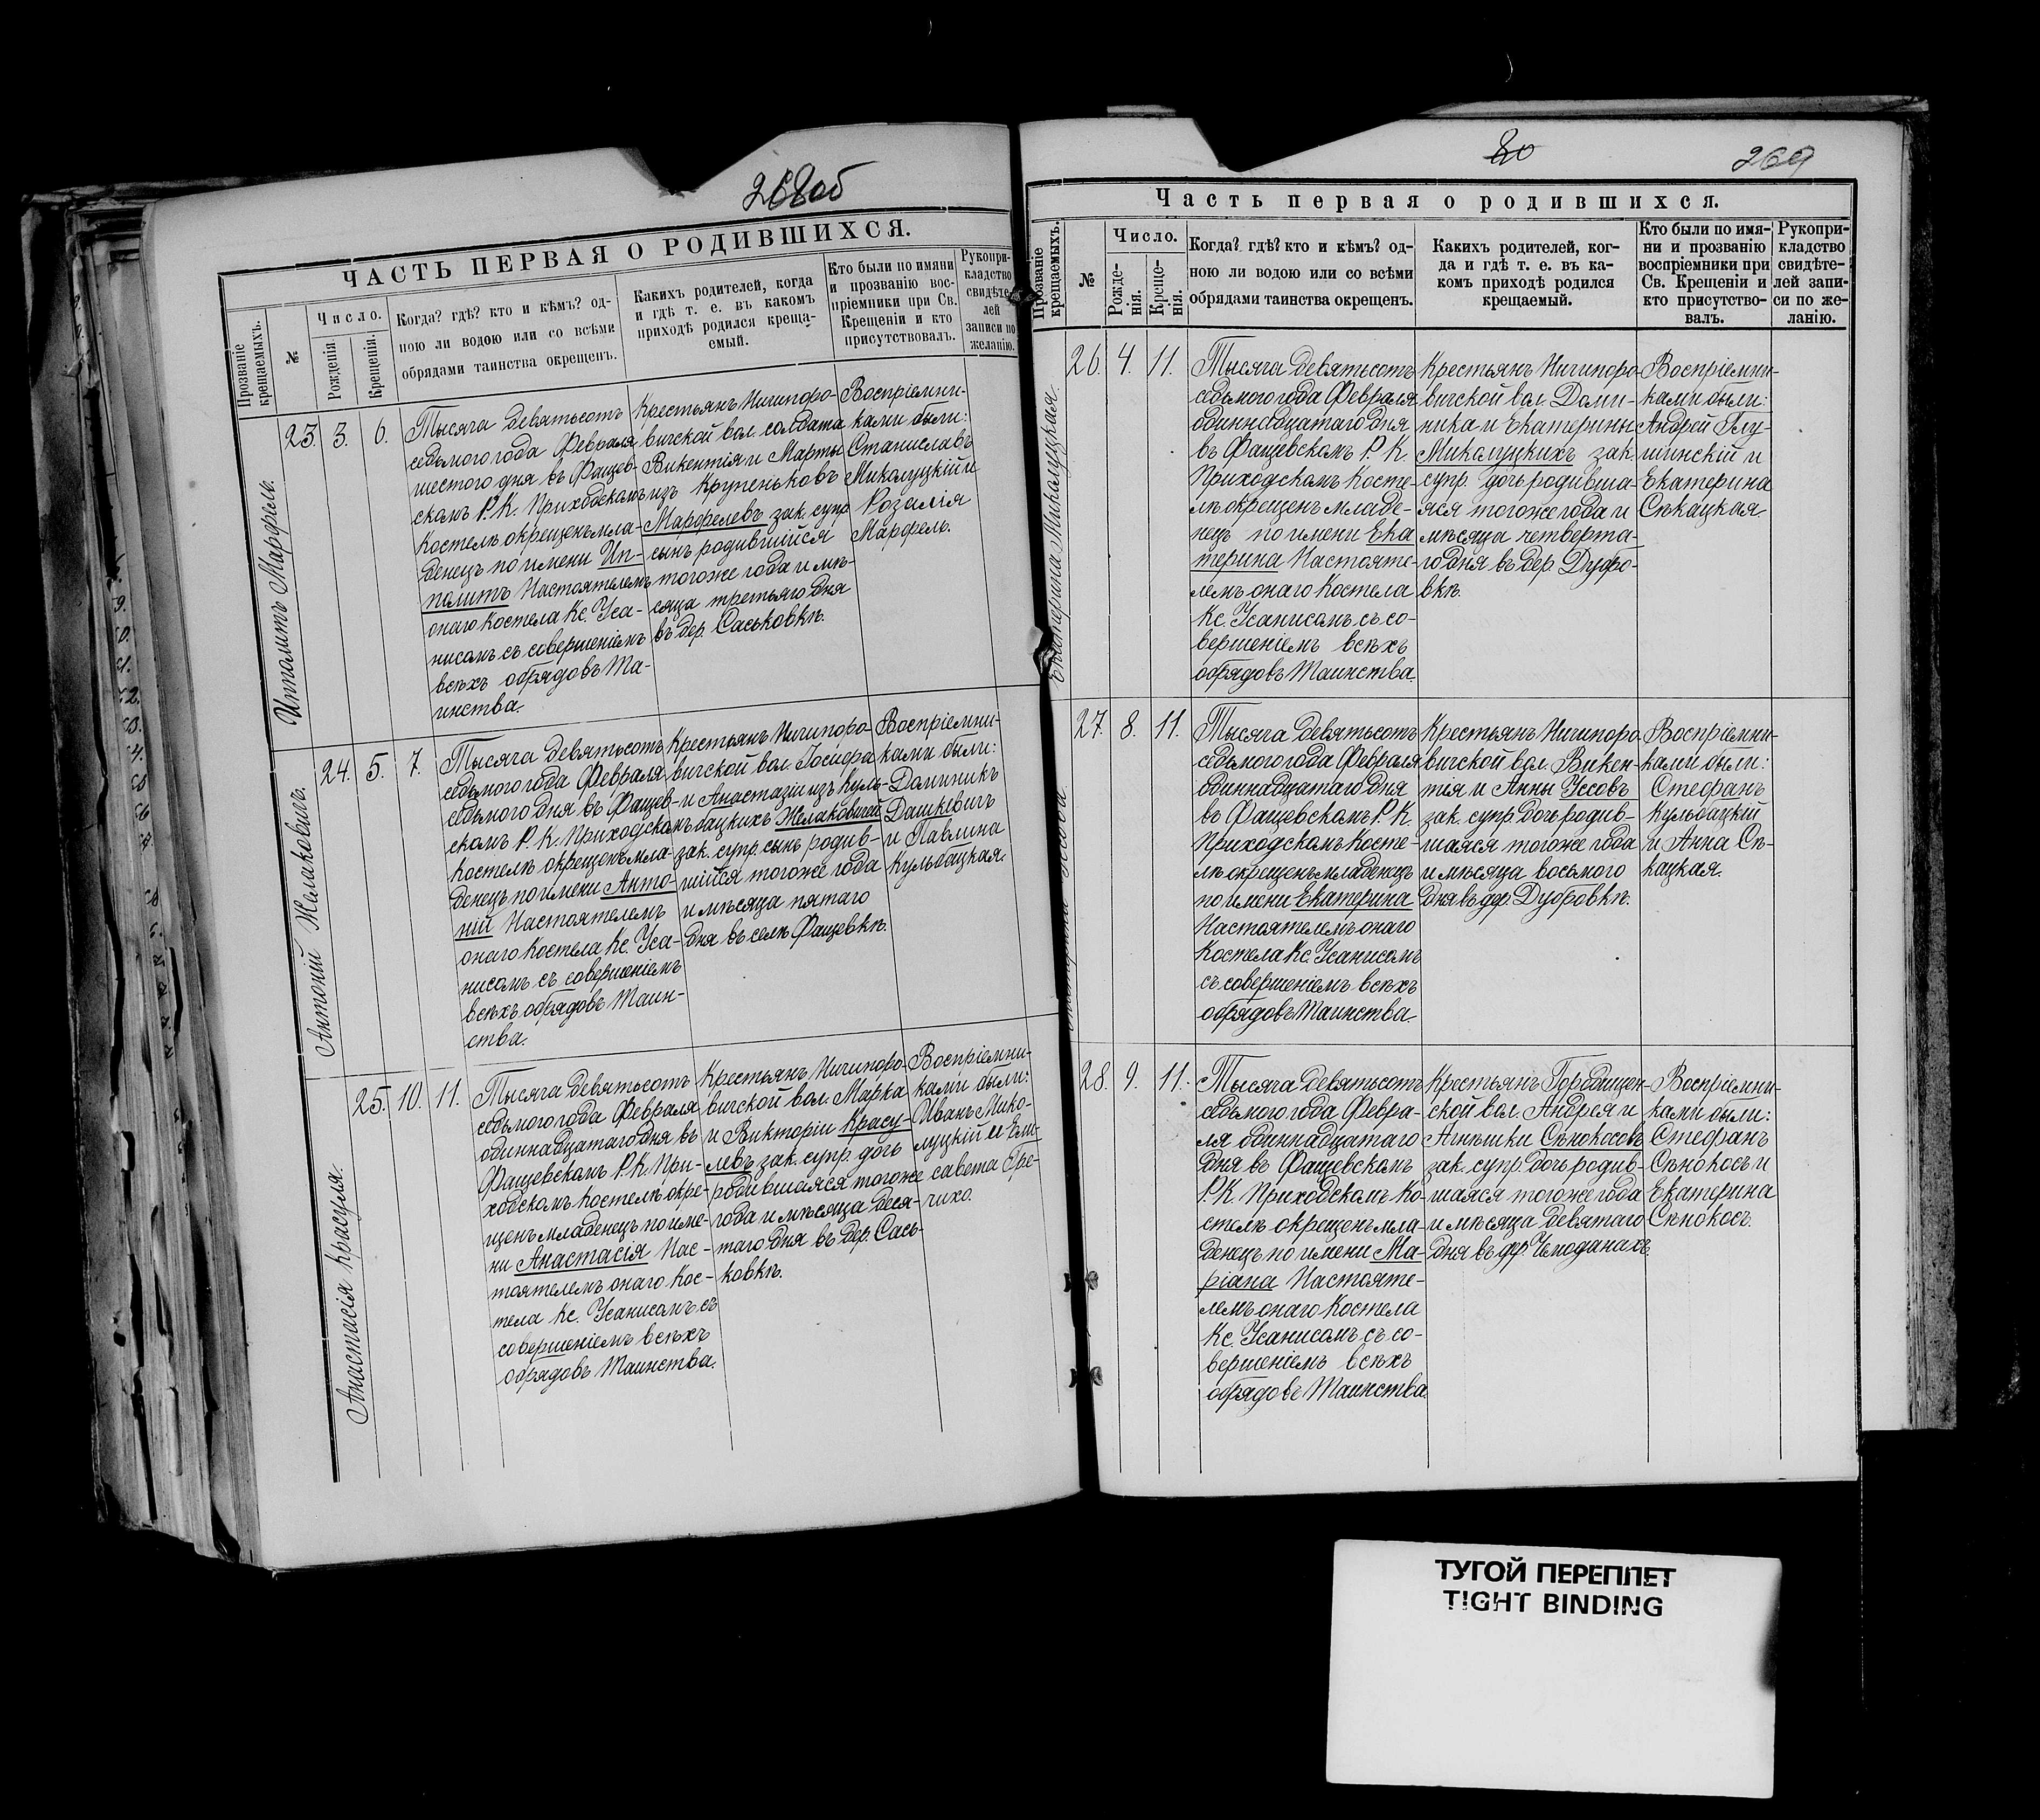 268об
ЧАСТЬ ПЕРВАЯ О РОДИВШИХСЯ.
Прозваніе крещаемыхъ.
№
Число.
Рожденія
Крещенія.
Когда? гдѣ? кто и кѣмъ? од-
ною ли водою или со всѣми
обрядами таинства окрещенъ.
Какихъ родителей, когда
и гдѣ т. е. въ какомъ
приходѣ родился креща-
емый.
Кто были по имяни
и прозванію вос-
пріемники при Св.
Крещеніи и кто
присутствовалъ.
Рукопри-
кладство
свидѣте-
лей
записи по
желанію.
Ипполитъ Марфель.
23. 3. 6.
Тысяча девятьсотъ
седьмого года Февраля
шестого дня въ Фащев-
скомъ Р. К. Приходскомъ
Костелѣ окрещенъ мла-
денецъ по имени Ип-
политъ Настоятелемъ
онаго Костела Кс. Уса-
нисомъ съ совершеніемъ
всѣхъ обрядовъ Та-
инства.
Крестьянъ Ничипоро-
вичской вол. солдата
Викентія и Марты
изъ Крупеньковъ
Марфелевъ зак. супр
сынъ родившійся
тогоже года и мѣ-
сяца третьяго дня
въ дер. Саськовкѣ.
Воспріемни-
ками были:
Станиславъ
Миколуцкій и
Розалія
Марфель.
Антоній Желаковичъ.
24. 5. 7.
Тысяча девятьсотъ
седьмого года Февраля
седьмого дня въ Фащев-
скомъ Р. К. Приходскомъ
Костелѣ окрещенъ мла-
денецъ по имени Анто-
ній Настоятелемъ
онаго Костела Кс. Уса-
нисомъ съ совершеніемъ
всѣхъ обрядовъ Таин-
ства.
Крестьянъ Ничипоро-
вичской вол. Іосифа
и Анастазіи изъ Куль-
бацкихъ Желаковичей
зак. супр. сынъ родив-
шійся тогоже года
и мѣсяца пятаго
дня въ селѣ Фащевкѣ.
Воспріемни-
ками были:
Доминикъ
Дашкевичъ
и Павлина
Кульбацкая.
Анастасія Красуля.
25. 10. 11.
Тысяча девятьсотъ
седьмого года Февраля
одиннадцатаго дня въ
Фащевскомъ Р. К. При-
ходскомъ Костелѣ окре-
щенъ младенецъ по име-
ни Анастасія Нас-
тоятелемъ онаго Кос-
тела Кс. Усанисомъ съ
совершеніемъ всѣхъ
обрядовъ Таинства.
Крестьянъ Ничипоро-
вичской вол. Марка
и Викторіи Красу-
левъ зак. супр. дочь
родившаяся тогоже
года и мѣсяца деся-
таго дня въ дер. Сась-
ковкѣ.
Воспріемни-
ками были:
Иванъ Мико-
луцкій и Ели-
савета Гре-
чихо.
80
269
Часть первая о родившихся.
Прозваніе крещаемыхъ.
№
Число.
Рожде-
нія.
Креще-
нія.
Когда? гдѣ? кто и кѣмъ? од-
ною ли водою или со всѣми
обрядами таинства окрещенъ.
Какихъ родителей, ког-
да и гдѣ т. е. въ ка-
комъ приходѣ родился
крещаемый.
Кто были по имя-
ни и прозванію
воспріемники при
Св. Крещеніи и
кто присутство-
валъ.
Рукопри-
кладство
свидѣте-
лей запи-
си по же-
ланію.
Екатерина Микалуцкая.
26. 4. 11.
Тысяча девятьсотъ
седьмого года Февраля
одиннадцатаго дня
въ Фащевскомъ Р. К.
Приходскомъ Косте-
лѣ окрещенъ младе-
нецъ по имени Ека
терина Настояте-
лемъ онаго Костела
Кс. Усанисомъ съ со-
вершеніемъ всѣхъ
обрядовъ Таинства.
Крестьянъ Ничипоро-
вичской вол. Доми-
ника и Екатерины
Миколуцкихъ зак.
супр. дочь родивша-
яся тогоже года и
мѣсяца четверта-
го дня въ дер. Дубро-
вкѣ.
Воспріемни-
ками были:
Андрей Глу-
шинскій и
Екатерина
Сѣкацкая
27. 8. 11.
Тысяча девятьсотъ
седьмого года Февраля
одиннадцатаго дня
въ Фащевскомъ Р. К.
Приходскомъ Косте-
лѣ окрещенъ младенецъ
по имени Екатерина
Настоятелемъ онаго
Костела Кс. Усанисомъ
съ совершеніемъ всѣхъ
обрядовъ Таинства.
Крестьянъ Ничипоро-
вичской вол. Викен-
тія и Анны Усовъ
зак. супр. дочь родив-
шаяся тогоже года
и мѣсяца восьмого
дня въ дер. Дубровкѣ.
Воспріемни-
ками были:
Стефанъ
Кульбацкій
и Анна Сѣ-
кацкая.
28. 9. 11.
Тысяча девятьсотъ
седьмого года Февра-
ля одиннадцатаго
дня въ Фащевскомъ
Р. К. Приходскомъ Ко-
стелѣ окрещенъ мла-
денецъ по имени Ма-
ріана Настояте-
лемъ онаго Костела
Кс. Усанисомъ съ со-
вершеніемъ всѣхъ
обрядовъ Таинства
Крестьянъ Городищен-
ской вол. Андрея и
Агнѣшки Сѣнокосовъ
зак. супр. дочь родив-
шаяся тогоже года
и мѣсяца девятаго
дня въ дер. Чемоданахъ.
Воспріемни-
ками были:
Стефанъ
Сѣнокосъ и
Екатерина
Сѣнокосъ.
ТУГОЙ ПЕРЕПЛЕТ
TIGHT BINDING